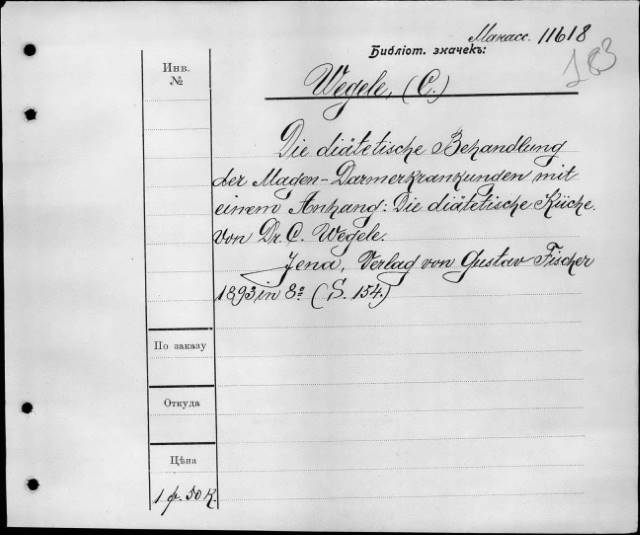 Манасс. 11618
Библіот. значекъ:
183
Инв.
№
Wegele, (C.)
Die diätetische Behandlung
der Magen-Darmerkrankungen mit
einem Anhang: Die diätetische Küche.
Von Dr. C. Wegele.
Jena, Verlag von Gustav Fischer
1893 in 8º (S. 154.)
По заказу
Откуда
Цѣна
1 р. 50 К.